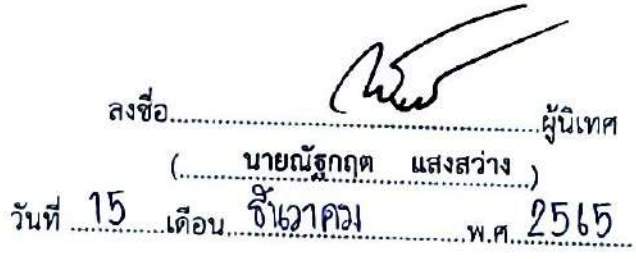 ลงชื่อ..............................ผู้นิเทศ
(..........นายณัฐกฤต แสงสว่าง..)
วันที่ ..15......เดือน..ธันวาคม............พ.ศ..2565......